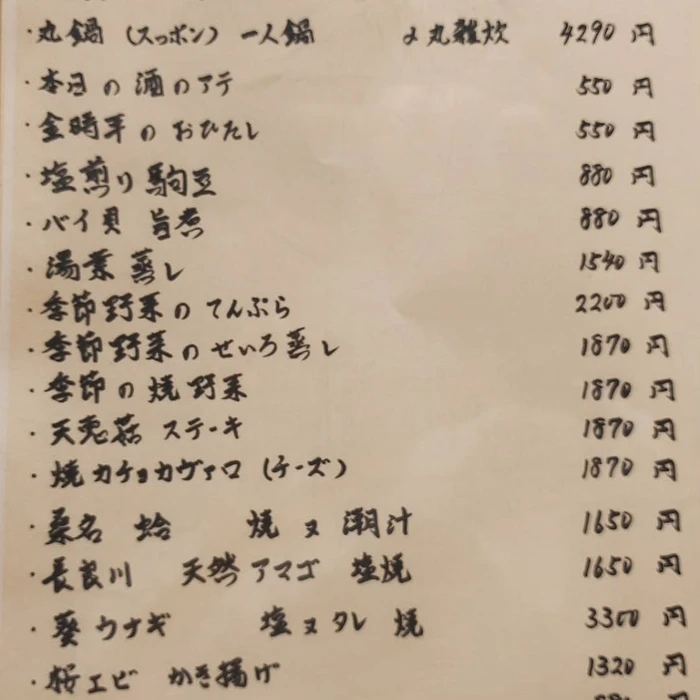 ・丸鍋 (スッポン) 一人鍋 丸雑炊 4290 円
・本日の酒のアテ 550 円
・金時草のおひたし 550 円
・塩煎り駒豆 880 円
・バイ貝 旨煮 880 円
・湯葉蒸し 1540 円
・季節野菜のてんぷら 2200 円
・季節野菜のせいろ蒸し 1870 円
・季節の焼野菜 1870 円
・天恵菇 ステーキ 1870 円
・焼カチョカヴァロ (チーズ) 1870 円
・桑名 蛤 焼 又 潮汁 1650 円
・長良川 天然アマゴ 塩焼 1650 円
・葵ウナギ 塩 又 タレ 焼 3300 円
・桜エビ かき揚げ 1320 円